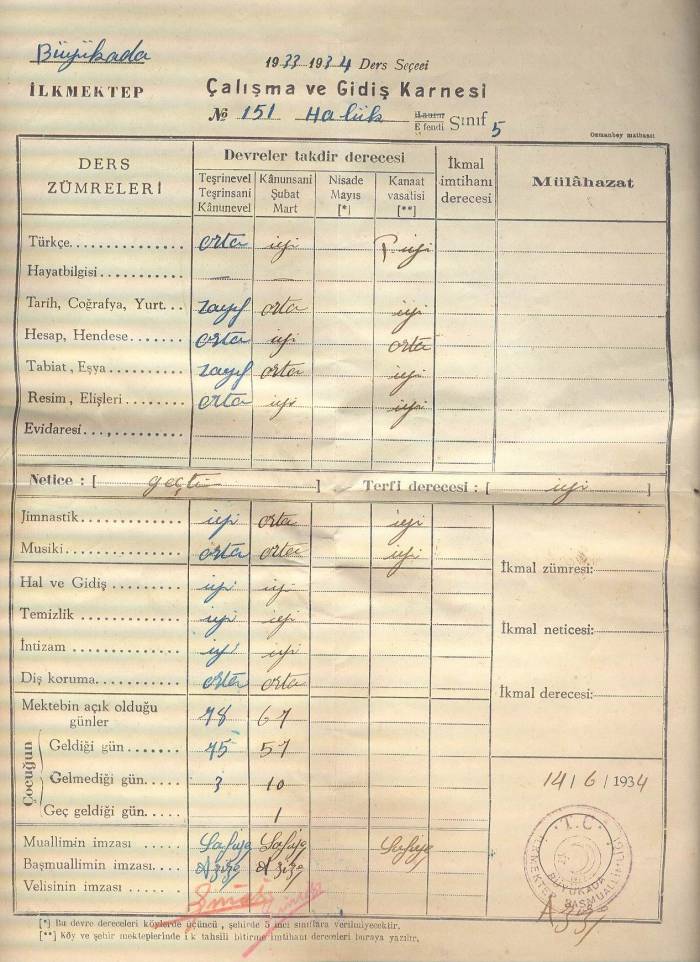 Büyükada
İLKMEKTEP
1933-1934 Ders Seçeei
Çalışma ve Gidiş Karnesi
№ 151 Halûk Hanım Efendi Sınıf 5
Osmanbey matbaası
DERS ZÜMRELERİ
Devreler takdir derecesi
Teşrinevel Teşrinsani Kânunevel
Kânunsani Şubat Mart
Nisade Mayıs [*]
Kanaat vasatisi [**]
İkmal imtihanı derecesi
Mülâhazat
Türkçe orta iyi P. iyi
Hayatbilgisi — —
Tarih, Coğrafya, Yurt zayıf orta iyi
Hesap, Hendese orta iyi orta
Tabiat, Eşya zayıf orta iyi
Resim, Elişleri orta iyi iyi
Evidaresi
Netice : [ geçti ] Terfi derecesi : [ iyi ]
Jimnastik iyi orta iyi
Musiki orta orta iyi
Hal ve Gidiş iyi iyi
Temizlik iyi iyi
İntizam iyi iyi
Diş koruma orta orta
Mektebin açık olduğu günler 78 67
Çocuğun
Geldiği gün 75 57
Gelmediği gün 3 10
Geç geldiği gün 1
Muallimin imzası Safiye Safiye Safiye
Başmuallimin imzası Azize Azize
Velisinin imzası
İkmal zümresi:
İkmal neticesi:
İkmal derecesi:
14/6/1934
T.C.
İLKMEKTEP BAŞMUALLİMLİĞİ
BÜYÜKADA
[*] Bu devre dereceleri köylerde üçüncü, şehirde 5 inci sınıflara verilmiyecektir.
[**] Köy ve şehir mekteplerinde ilk tahsili bitirme imtihanı dereceleri buraya yazılır.